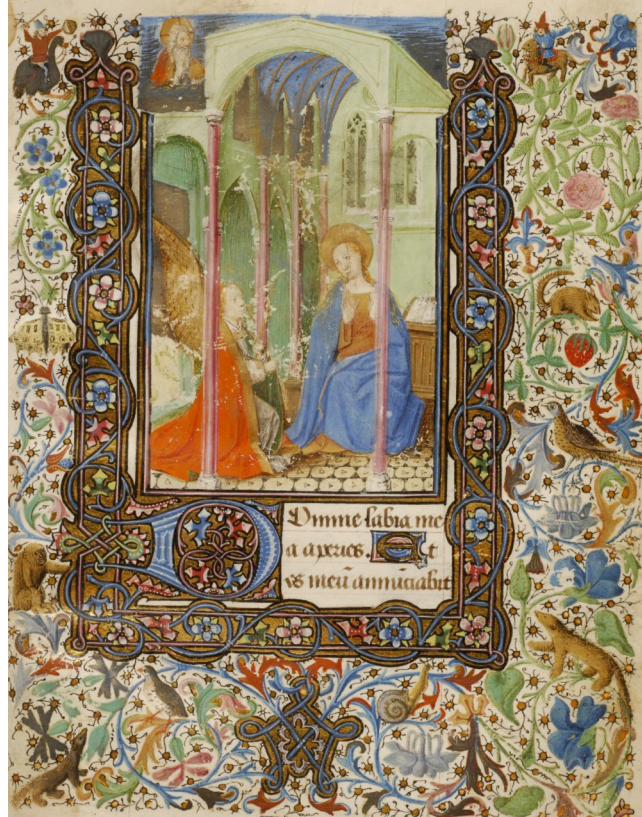 Domine labia me
a aperies. Et
os meū annūciabit